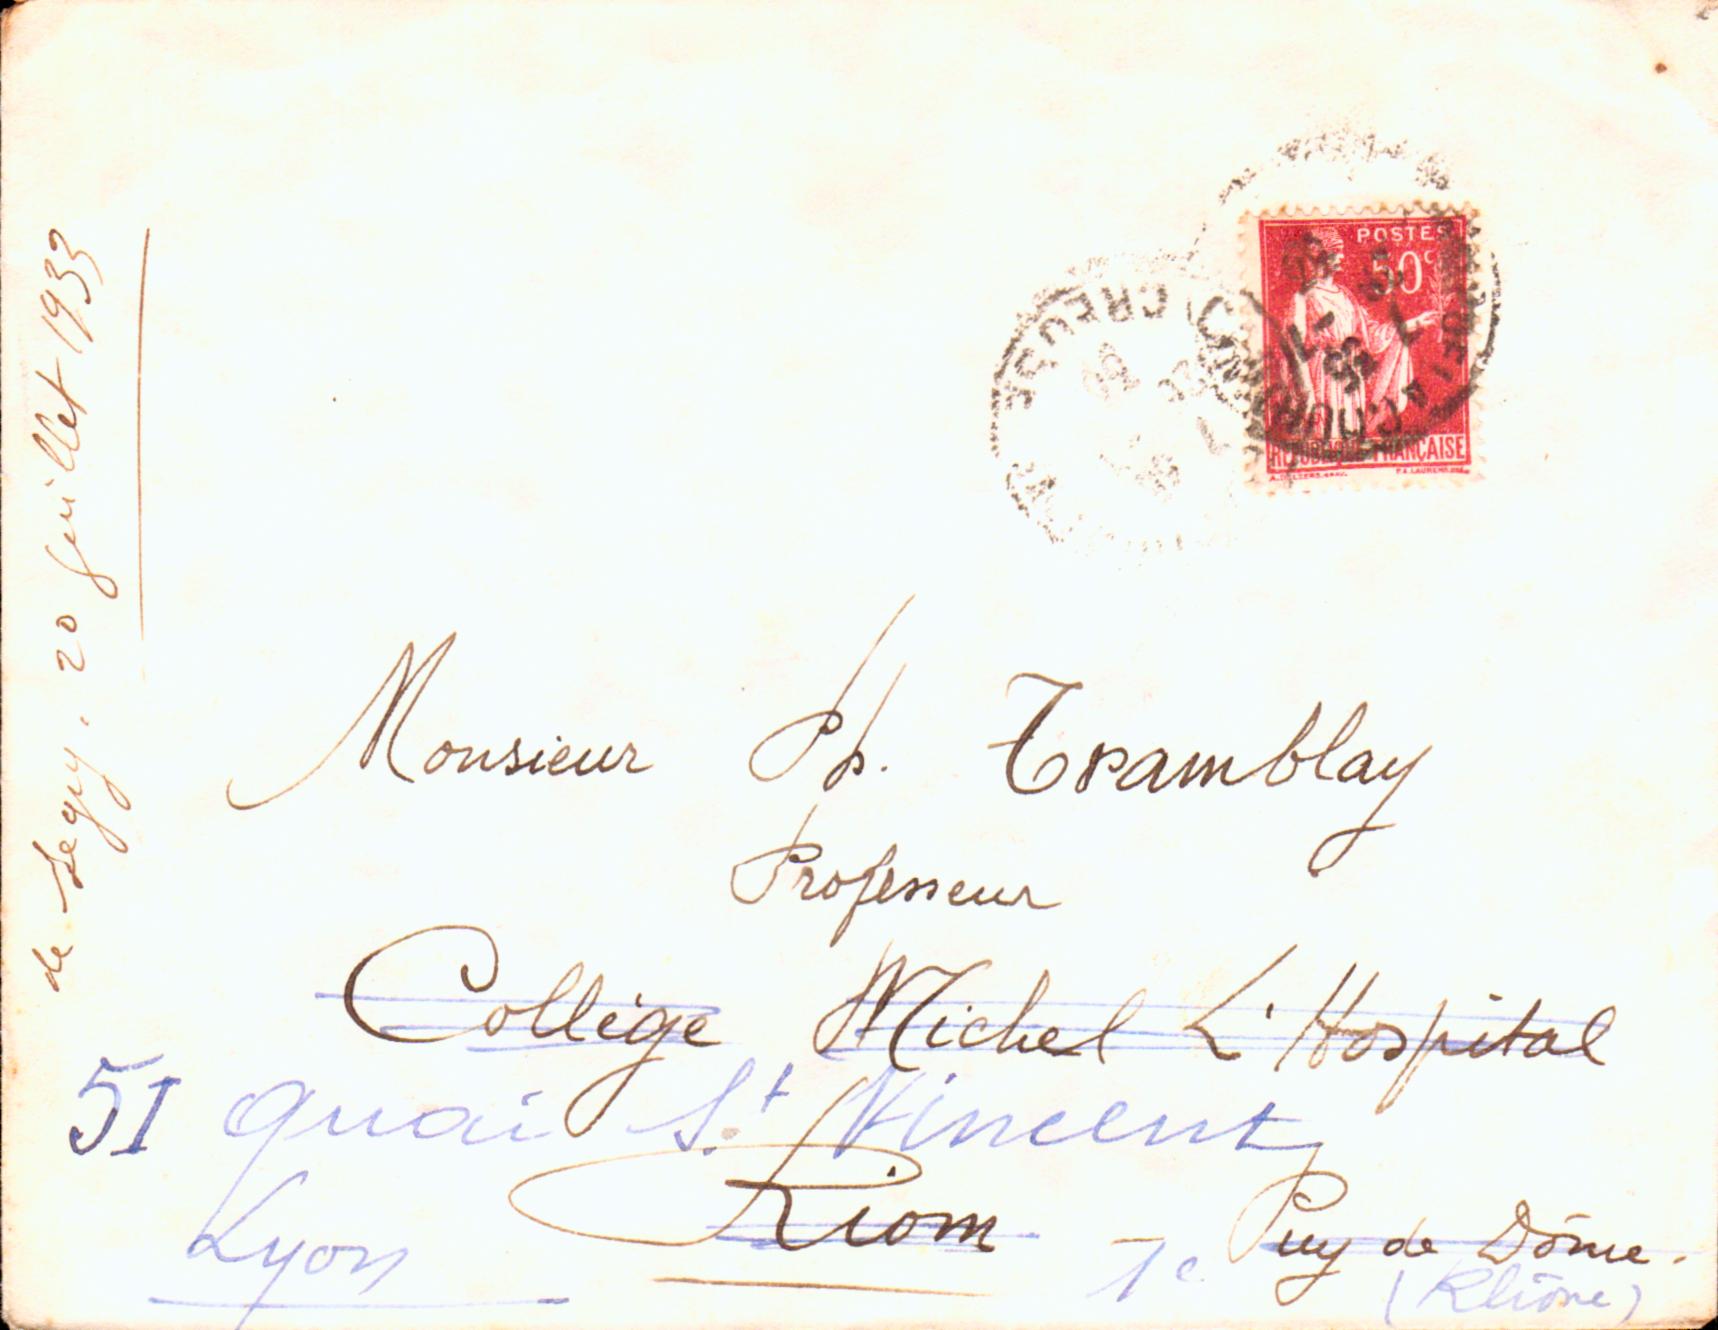 de Segry. 20 Juillet 1933
CREUSE
POSTES
50c
REPUBLIQUE FRANÇAISE
Monsieur Ph. Tramblay
Professeur
Collège Michel L'Hospital
51 quai St Vincent
Riom
Puy de Dôme.
Lyon 1e (Rhône)